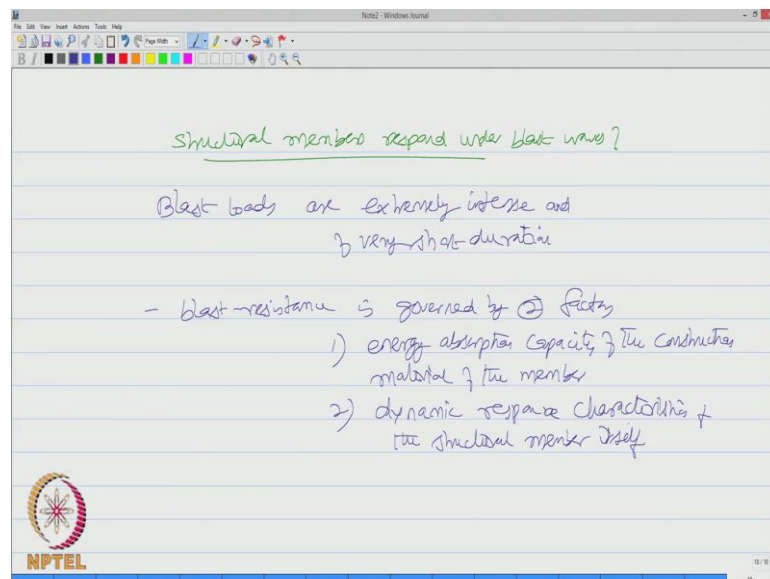 Note2 - Windows Journal
File Edit View Insert Actions Tools Help
Page Width
B I
Structural members respond under blast waves?
Blast loads are extremely intense and
of very short duration
- blast-resistance is governed by ② factors
1) energy absorption capacity of the construction
material of the member
2) dynamic response characteristics of
the structural member itself
NPTEL
18 / 18